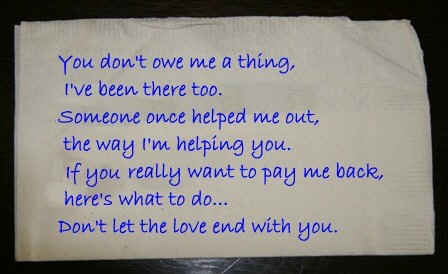 You don't owe me a thing,
I've been there too.
Someone once helped me out,
the way I'm helping you.
If you really want to pay me back,
here's what to do...
Don't let the love end with you.